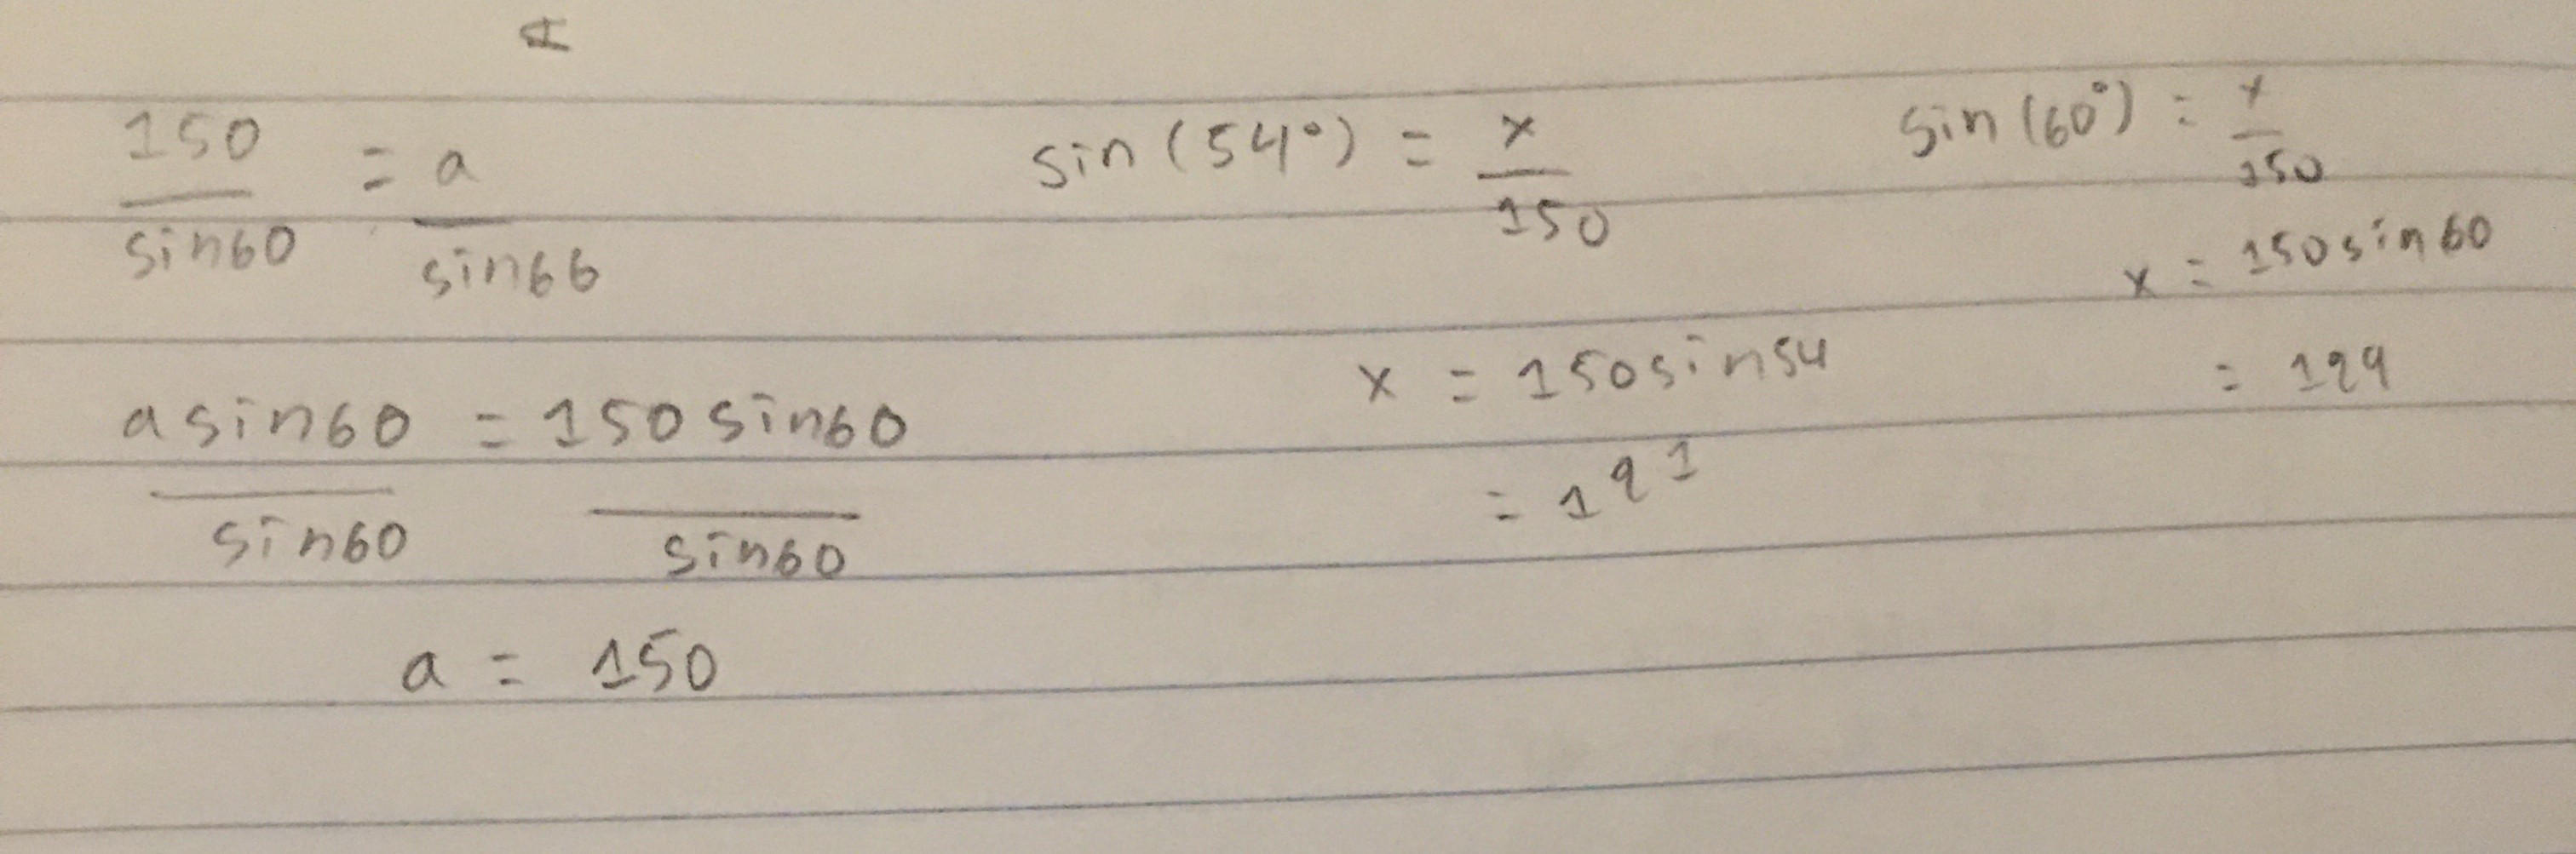 150 = a
sin60 sin66
asin60 = 150 sin60
sin60 sin60
a = 150
sin (54°) = x
150
x = 150sin54
= 121
sin (60°) = x
150
x = 150sin60
= 129